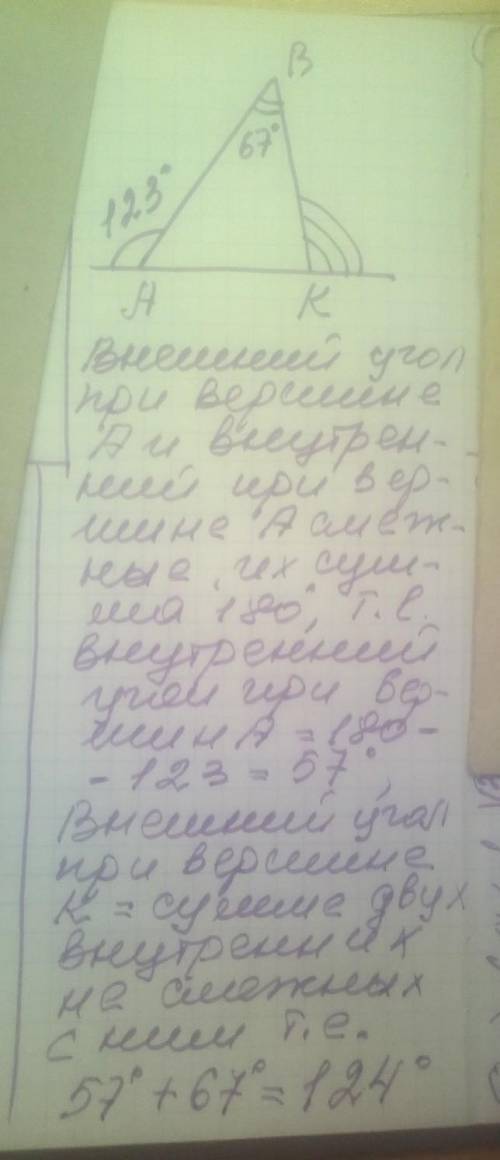 B
67°
123°
A K
Внешний угол
при вершине
А и внутрен-
ний при вер-
шине А смеж-
ные, их сум-
ма 180°, т.е.
внутренний
угол при вер-
шин А = 180 -
- 123 = 57°
Внешний угол
при вершине
К = сумме двух
внутренних
не смежных
с ним т.е.
57° + 67° = 124°